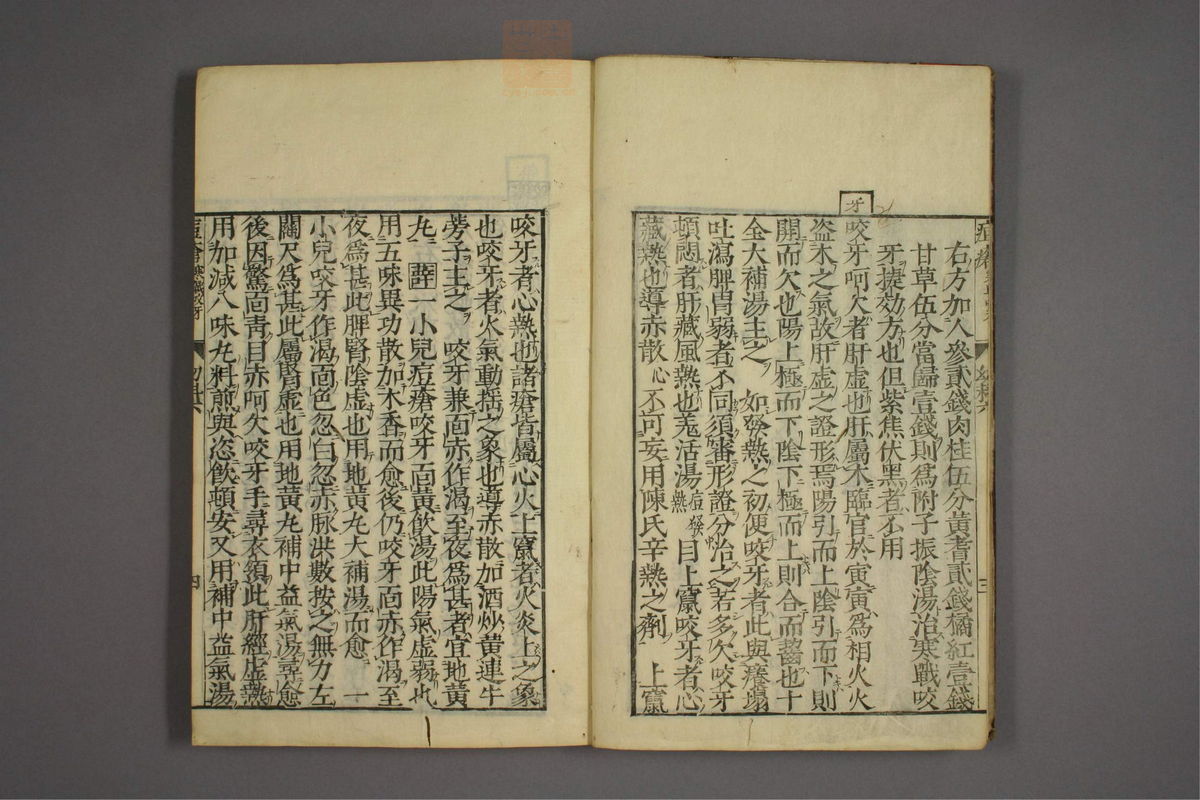 右方加人參貳錢肉桂伍分黃耆貳錢橘紅壹錢
甘草伍分當歸壹錢則爲附子振陰湯治寒戰咬
牙捷効方也但紫焦伏黑者不用
牙
咬牙呵欠者肝虛也肝屬木臨官於寅寅爲相火火
盜木之氣故肝虛之證形焉陽引而上陰引而下則
開而欠也陽上極而下陰下極而上則合而齧也十
全大補湯主之 如發熱之初便咬牙者此與癢塌
吐瀉脾胃弱者不同須審形證分治之若多欠咬牙
頓悶者肝藏風熱也羌活湯 目上竄咬牙者心
藏熱也導赤散心 不可妄用陳氏辛熱之劑 上竄
咬牙者心熱也諸瘡皆屬心火上竄者火炎上之象
也咬牙者火氣動搖之象也導赤散加酒炒黃連牛
蒡子主之 咬牙兼面赤作渴至夜爲甚者宜地黃
丸 薛 一小兒痘瘡咬牙面黃飲湯此陽氣虛弱也
用五味異功散加木香而愈後仍咬牙面赤作渴至
夜爲甚此脾腎陰虛也用地黃丸大補湯而愈 一
小兒咬牙作渴面色忽白忽赤脉洪數按之無力左
關尺爲甚此屬腎虛也用地黃丸補中益氣湯尋愈
後因驚面靑目赤呵欠咬牙手尋衣領此肝經虛熱
用加減八味丸料煎與恣飮頓安又用補中益氣湯
四